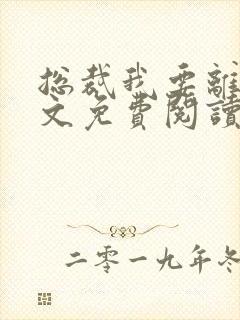 总裁我要離
文免費閱讀
二零一九年冬